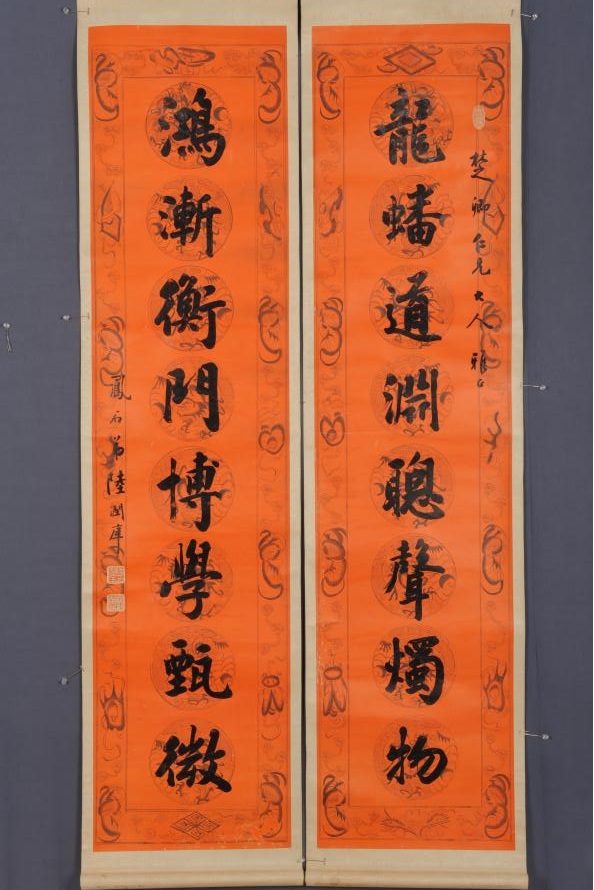 楚卿仁兄大人雅正
龍蟠道淵聰聲燭物
鴻漸衡門博學甄微
鳳石弟陸潤庠